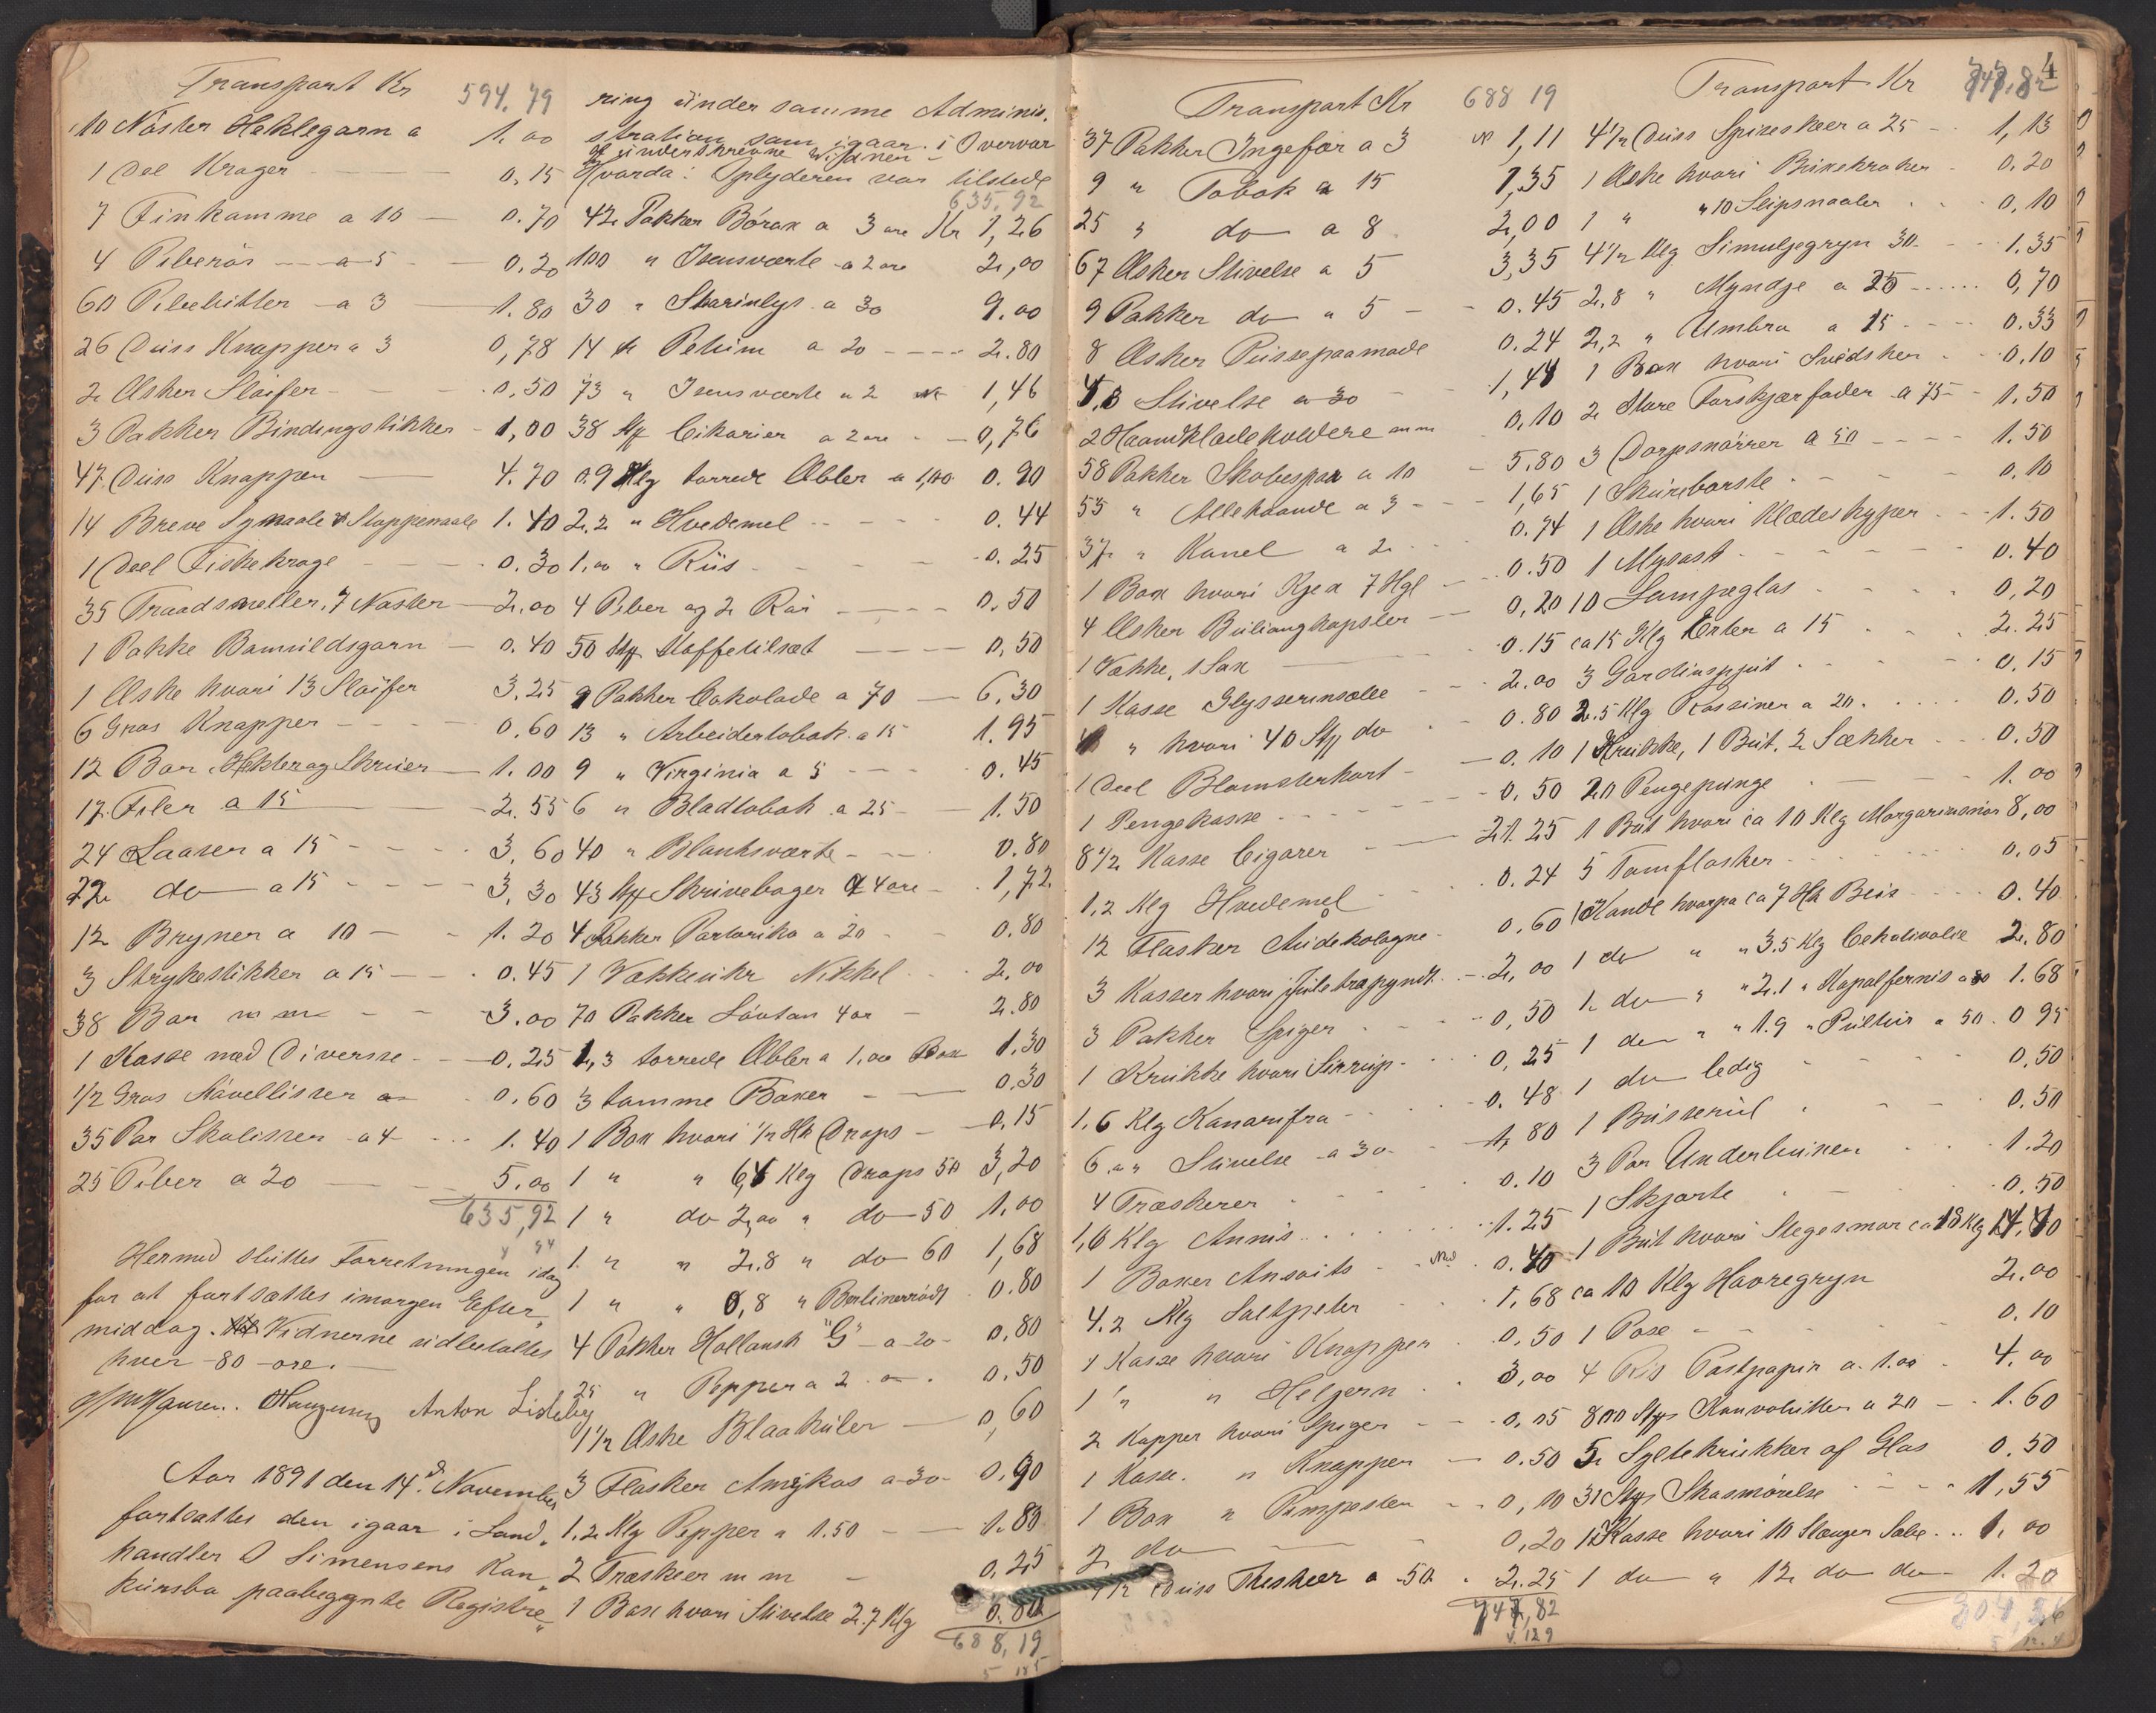 Transport Kr 594.79
10 Nøster Heklegarn a 1.00
1 Del Krager 0,15
7 Finkamme a 10 0.70
4 Piberør a 5 0.20
60 Pibehitler a 3 1.80
26 Duss Knapper a 3 0,78
2 Æsker Sløifer 0,50
3 Pakker Bindingstikker 1,00
47 Duss Knapper 4.70
14 Breve Synaale & Stoppenaale 1.40
1 Deel Fiskekroge 0.30
35 Traadsneller, 7 Nøster 2.00
1 Pakke Bomuldsgarn 0.40
1 Æske hvori 13 Sløifer 3.25
6 Gros Knapper 0.60
12 Bor, Hekter og Skruer 1.00
17 Filer a 15 2.55
24 Laaser a 15 3.60
22 do a 15 3,30
12 Bryner a 10 1.20
3 Strykestikker a 15 0.45
38 Bor m m 3.00
1 Kasse med Diversse 0.25
1/2 Gros Støvellisser 0.60
35 Par Skolisser a 4 1.40
25 Piber a 20 5.00
635,92
Hermed sluttes Forretningen idag
for at fortsættes imorgen Efter„
middag. Vidnerne udbetaltes
hver 80 øre.
Anton Lisleby
Aar 1891 den 14de November
fortsattes den igaar i Land„
handler O Simensens Kon„
kursbo paabegynte Registre„
ring under samme Adminis„
stration som igaar i Overvær
af underskrevne Vidner
Hvorda: Oplyderen var tilstede
635.92
42 Pakker Borax a 3 øre Kr 1,26
100 " Isensværte a 2 øre 2,00
30 " Stearinlys a 30 9.00
14 " Petum a 20 2.80
73 " Isensværte a 2 1,46
38 Stk Cikorier a 2 øre 0,76
0.9 Klg tørrede Æbler a 1,00 0.90
2.2 " Hvedemel 0.44
1,00 " Riis 0.25
4 Piber og 2 Rør 0.50
50 Stk Kaffetilsæt 0,50
9 Pakker Cokolade a 70 6.30
13 " Arbeidertobak a 15 1.95
9 " Virginia a 5 0.45
6 " Bladtobak a 25 1.50
40 " Blanksværte 0.80
43 Stk Skrivebøger a 4 øre 1,72
4 Pakker Portoriko a 20 0.80
1 Vækkeuhr Nikkel 2.00
70 Pakker Løvtan 4 ør 2.80
1,3 tørrede Æbler a 1.00 Box 1.30
3 tomme Boxer 0.30
1 Box hvori 1/2 Hk Drops 0.15
1 " " 6,4 Klg Drops 50 3,20
1 " do 2,00 " do 50 1.00
1 " " 2.8 " do 60 1,68
1 " " 0,8 " Berlinerrødt 0.80
4 Pakker Hollansk "G" a 20 0,80
25 " Pepper a 2 0.50
1 1/2 Æske Blaakuler 0,60
3 Flasker Amykos a 30 0.90
1.2 Klg Pepper a 1.50 1.80
2 Træskeer m m 0,25
1 Box hvori Stivelse 2.7 Klg 0.80
688,19
Transport Kr 688 19
37 Pakker Ingefær a 3 1,11
9 " Tobak a 15 1,35
25 " do a 8 2,00
67 Æsker Stivelse a 5 3,35
9 Pakker do a 5 0.45
8 Æsker Pussepaamade 0.24
4,8 Stivelse a 30 1,44
2 Haandklædeholdere m m 0,10
58 Pakker Skobespar a 10 5.80
55 " Allehaande a 3 1,65
37 " Kanel a 2 0.74
1 Box hvori Kjex 7 Hgl 0.50
4 Æsker Buliongkapsler 0,20
1 Vække, 1 Sax 0.15
1 Kasse Glysserinsæbe 2.00
1 " hvori 40 Stk do 0.80
1 Deel Blomsterkort 0.10
1 Pengekasse 0,50
8 1/2 Kasse Cigarer 21.25
1,2 Klg Hvedemel 0.24
12 Flasker Audekologne 0.60
3 Kasser hvori Juletrepynt 2,00
3 Pakker Spiger 0,50
1 Krukke hvori Sirrup 0,25
1.6 Klg Kanarifrø 0.48
6.00 Stivelse a 30 1,80
4 Træskerer 0.10
1,6 Klg Annis 1.25
1 Boxer Ansoits 0.40
4.2 Klg Saltpeter 1,68
1 Kasse hvori Knapper 0,50
1 " " Helgern 3,00
2 Kopper hvori Spiger 0,15
1 Kasse " Knapper 0.50
1 Box " Pimpesten 0,10
2 do 0,20
4 1/2 Duss Theskeer a 50 2.25
747,82
Transport Kr 747.82
4
4 1/2 Duss Spiseskeer a 25 1,13
1 Æske hvori Buxekroker 0.20
1 " " 10 Slipsnaaler 0,10
4 1/2 Klg Simuljegryn 30 1.35
2.8 " Myndje a 25 0,70
2,2 " Umbra a 15 0.33
1 Box hvori Svedsker 0.10
2 Store Forskjærfader a 75 1.50
3 Dorgsnører a 50 1.50
1 Skurebørste 0.10
1 Æske hvori Klædeskyper 1.50
1 Mysost 0.40
10 Lampeglas 0,20
ca 15 Klg Erter a 15 2.25
3 Gardinspyit 0,15
2.5 Klg Rossiner a 20 0,50
1 Krukke, 1 But, 2 Sækker 0.50
20 Pengepunge 1.00
1 But hvori ca 10 Klg Margarinsmør 8,00
5 Tomflasker 0.05
1 Kande hvorpa ca 7 Hk Beis 0.40
1 do " " 3.5 Klg Cekativolie 2.80
1 do " " 2.1 " Kopalfernis a 80 1.68
1 do " " 1.9 " Pulitur a 50 0 95
1 do ledig 0,50
1 Busserul 0.50
3 Par Underbuxer 1.20
1 Skjorte 0.50
1 But hvori Stegesmør ca 18 Klg 14,40
ca 10 Klg Havregryn 2.00
1 Pose 0.10
4 Ris Postpapir a 1.00 4,00
800 Styk Konvolutter a 20 1.60
5 Syltekrukker af Glas 0.50
31 Styk Skosmørelse 1,55
1 Kasse hvori 10 Stænger Sæbe 1,00
1 do " 12 do do 1.20